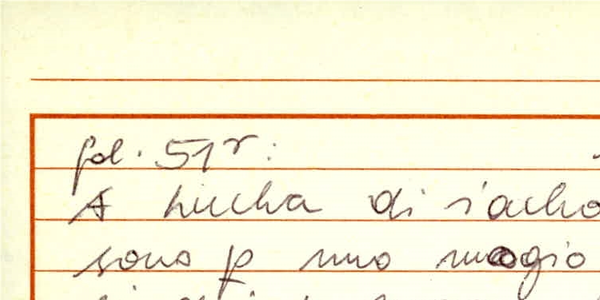 fol. 51r:
A lucha di iacho
sono p uno mogio